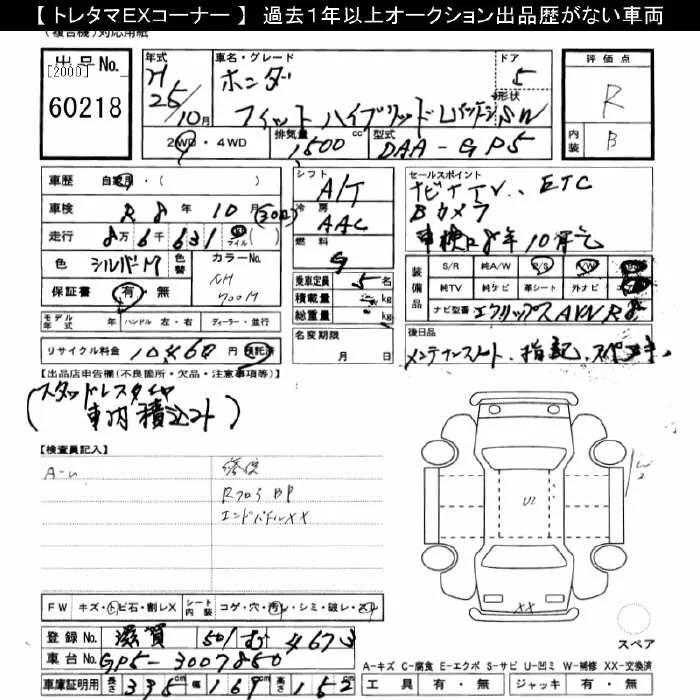 【 トレタマＥＸコーナー 】 過去１年以上オークション出品歴がない車両
(複合機)対応用紙
出品No.
[2000]
60218
年式
H 25/10月
車名・グレード
ホンダ
フィット ハイブリッド
ドア
5
形状
SW
2WD・4WD
排気量
1500 cc
型式
DAA-GP5
評価点
R
内装
B
車歴 自家用・( )
車検 R 8年 10月
走行 8万6千631 マイル( )
色 シルバーM
色替
カラーNo. NH 700M
保証書 有・無
シフト A/T
冷房 AAC
燃料 G
乗車定員 5名
積載量 kg
総重量 kg
セールスポイント
ナビ TV、ETC
Bカメラ
車検R8年10月
装備品
S/R 純A/W P/S P/W
純TV 純ナビ 革シート 外ナビ
ナビ型番 エクリプス AVN R8
モデル年式 年
ハンドル 左・右
ディーラー・並行
リサイクル料金 10460円 預託済
名変期限 月 日
後日品
メンテナンスノート、指記、スペアキー
【出品店申告欄(不良箇所・欠品・注意事項等)】
(スタッドレスタイヤ
車内積込み)
【検査員記入】
A-U
修復
Rフロア BP
エンドパネルXX
U2
W2
XX
スペア
FW キズ・トビ石・割レX
シート内装 コゲ・穴・汚レ・シミ・破レ・スレ
登録No. 滋賀 501 む 4673
車台No. GP5-3007850
車庫証明用 長さ 395cm 幅 169cm 高さ 152cm
A-キズ C-腐食 E-エクボ S-サビ U-凹ミ W-補修 XX-交換済
工具 有・無 ジャッキ 有・無